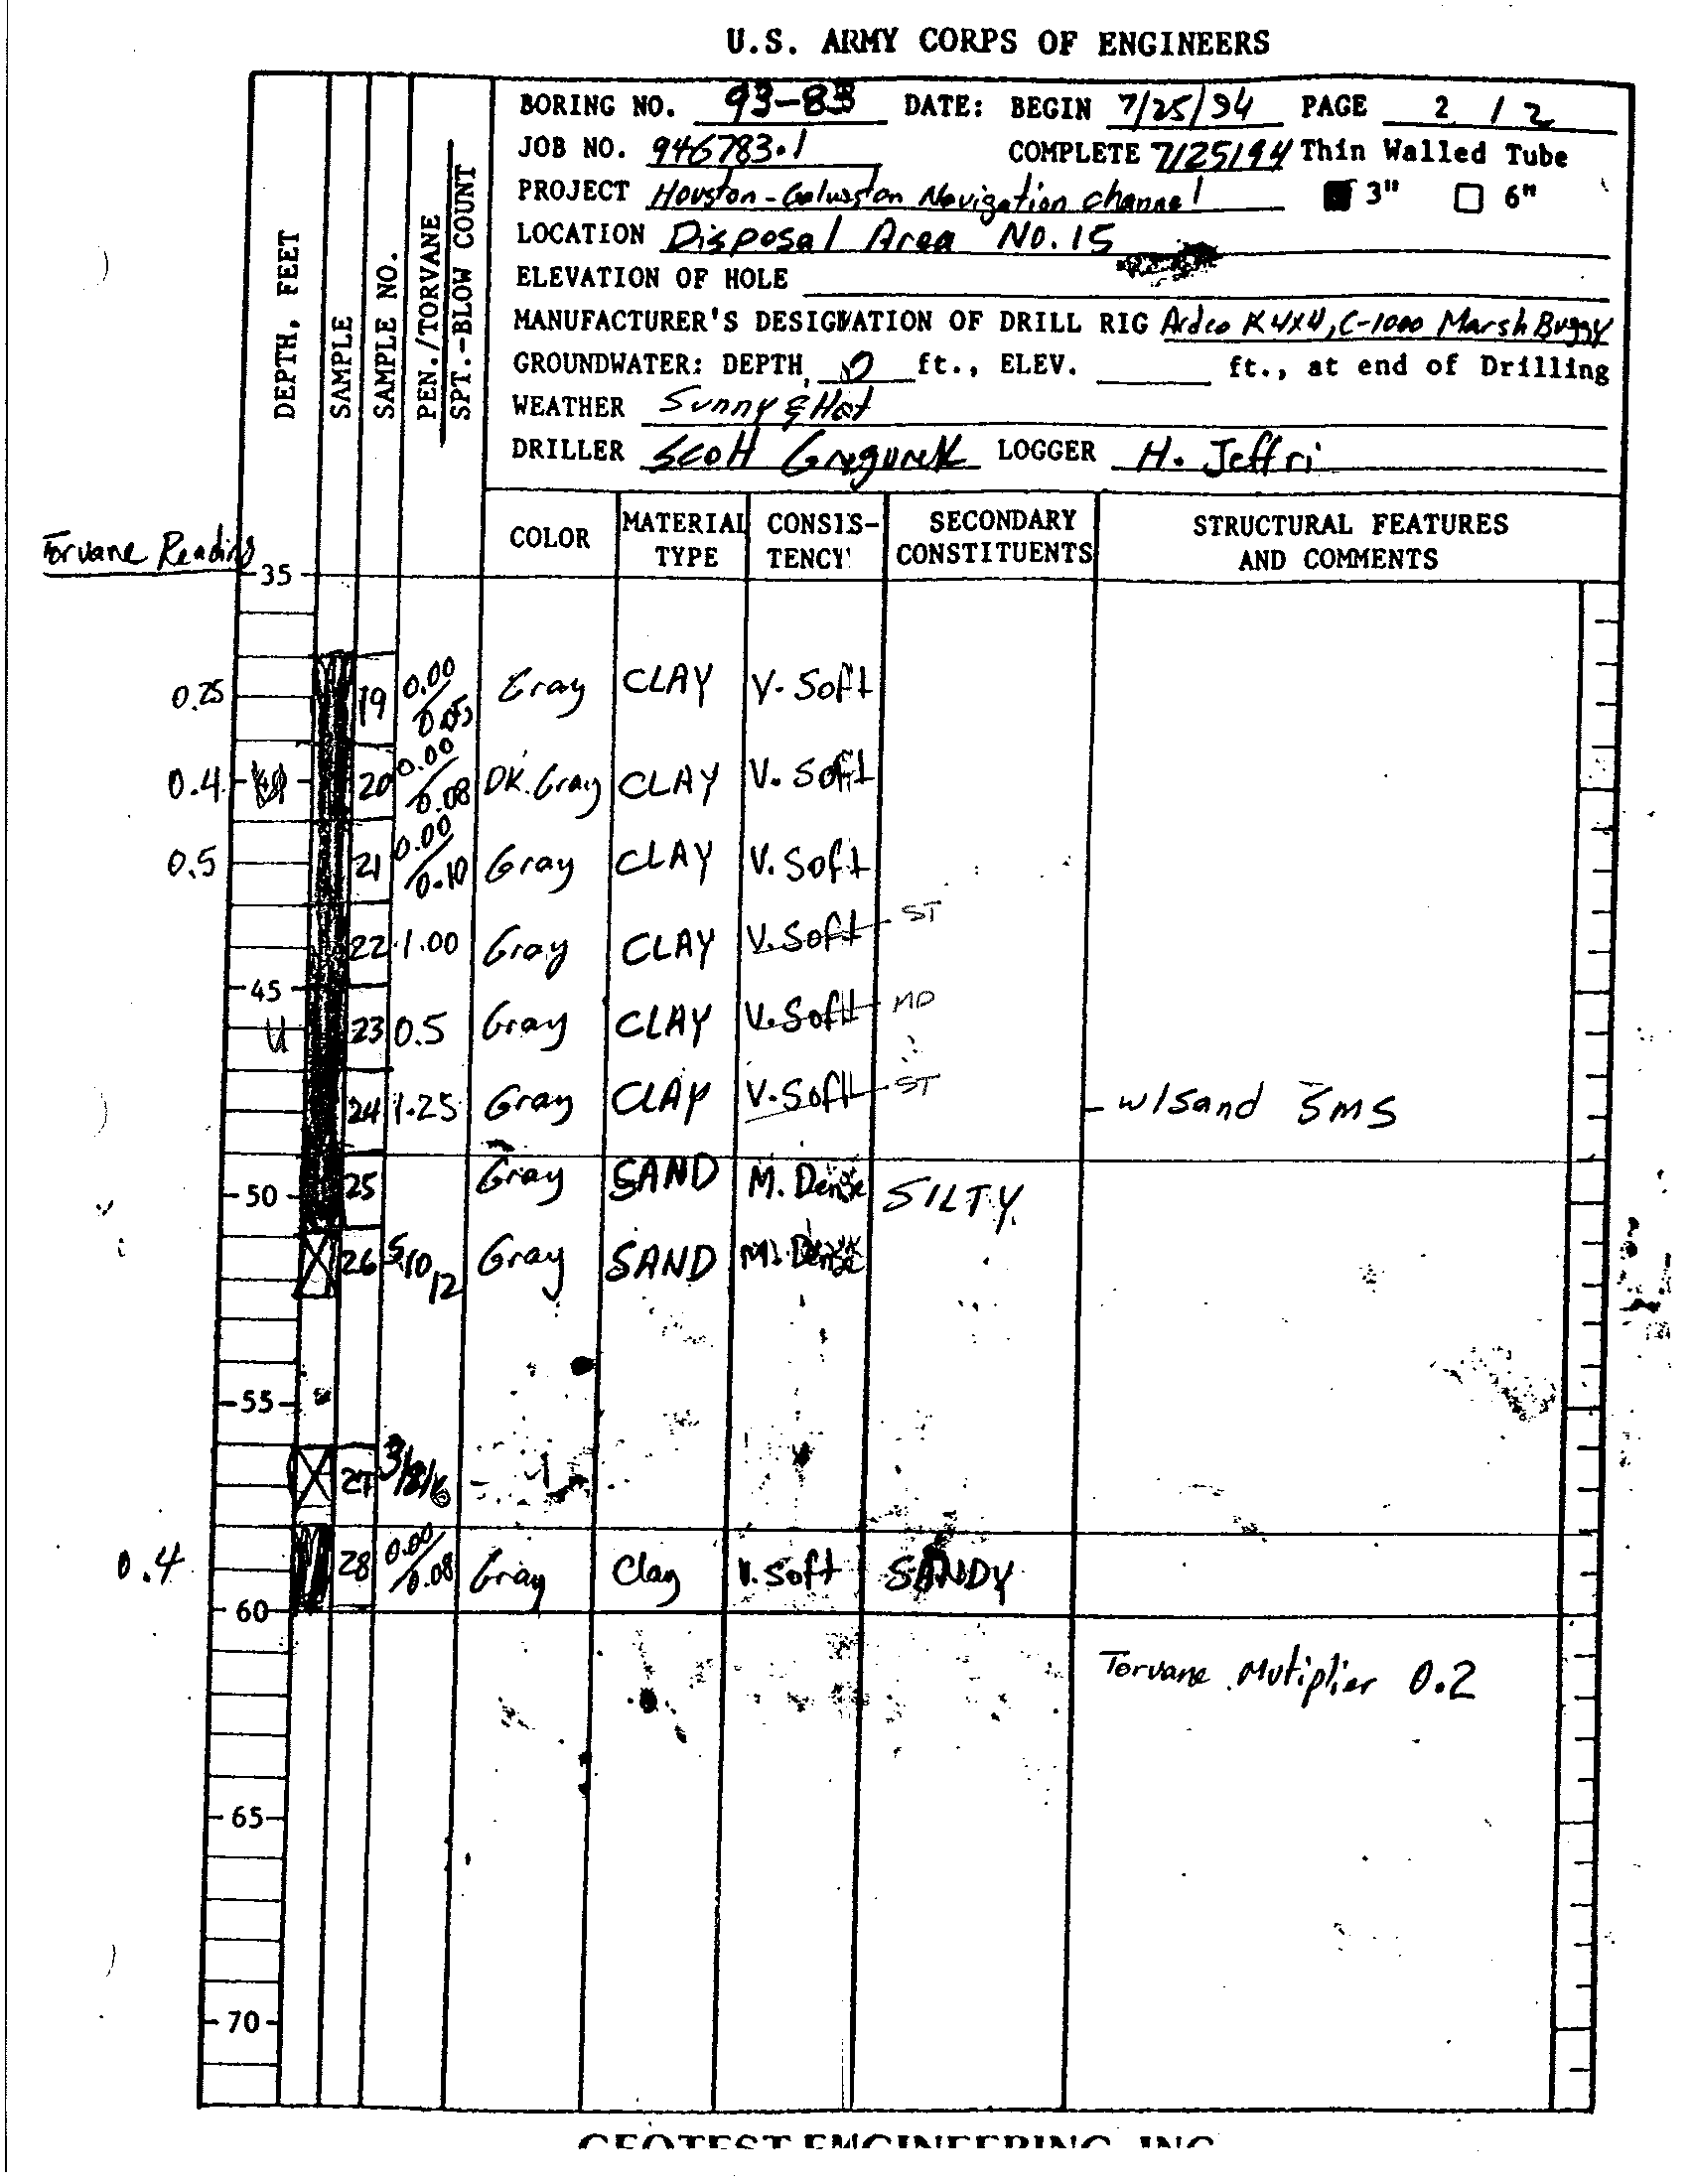 U.S. ARMY CORPS OF ENGINEERS
BORING NO. 93-83 DATE: BEGIN 7/25/94 PAGE 2 / 2
JOB NO. 946783.1 COMPLETE 7/25/94 Thin Walled Tube
PROJECT Houston-Galveston Navigation channel 3" 6"
LOCATION Disposal Area No. 15
ELEVATION OF HOLE
MANUFACTURER'S DESIGNATION OF DRILL RIG Ardco K 4X4, C-1000 Marsh Buggy
GROUNDWATER: DEPTH 0 ft., ELEV. ft., at end of Drilling
WEATHER Sunny & Hot
DRILLER Scott LOGGER H. Jeffri
DEPTH, FEET
SAMPLE
SAMPLE NO.
PEN./TORVANE
SPT.-BLOW COUNT
COLOR MATERIAL TYPE CONSIS-TENCY SECONDARY CONSTITUENTS STRUCTURAL FEATURES AND COMMENTS
Torvane Reading
35
0.25 19 0.00/0.05 Gray CLAY V. Soft
0.4 20 0.00/0.08 DK. Gray CLAY V. Soft
0.5 21 0.00/0.10 Gray CLAY V. Soft
22 1.00 Gray CLAY V. Soft ST
45
23 0.5 Gray CLAY V. Soft MD
24 1.25 Gray CLAY V. Soft ST - w/Sand SMS
50 25 Gray SAND M. Dense SILTY
26 5/10/12 Gray SAND M. Dense
55
27 3/8/6
0.4 28 0.00/0.08 Gray Clay V. Soft SANDY
60
Torvane Mutiplier 0.2
65
70
GEOTEST ENGINEERING, INC.